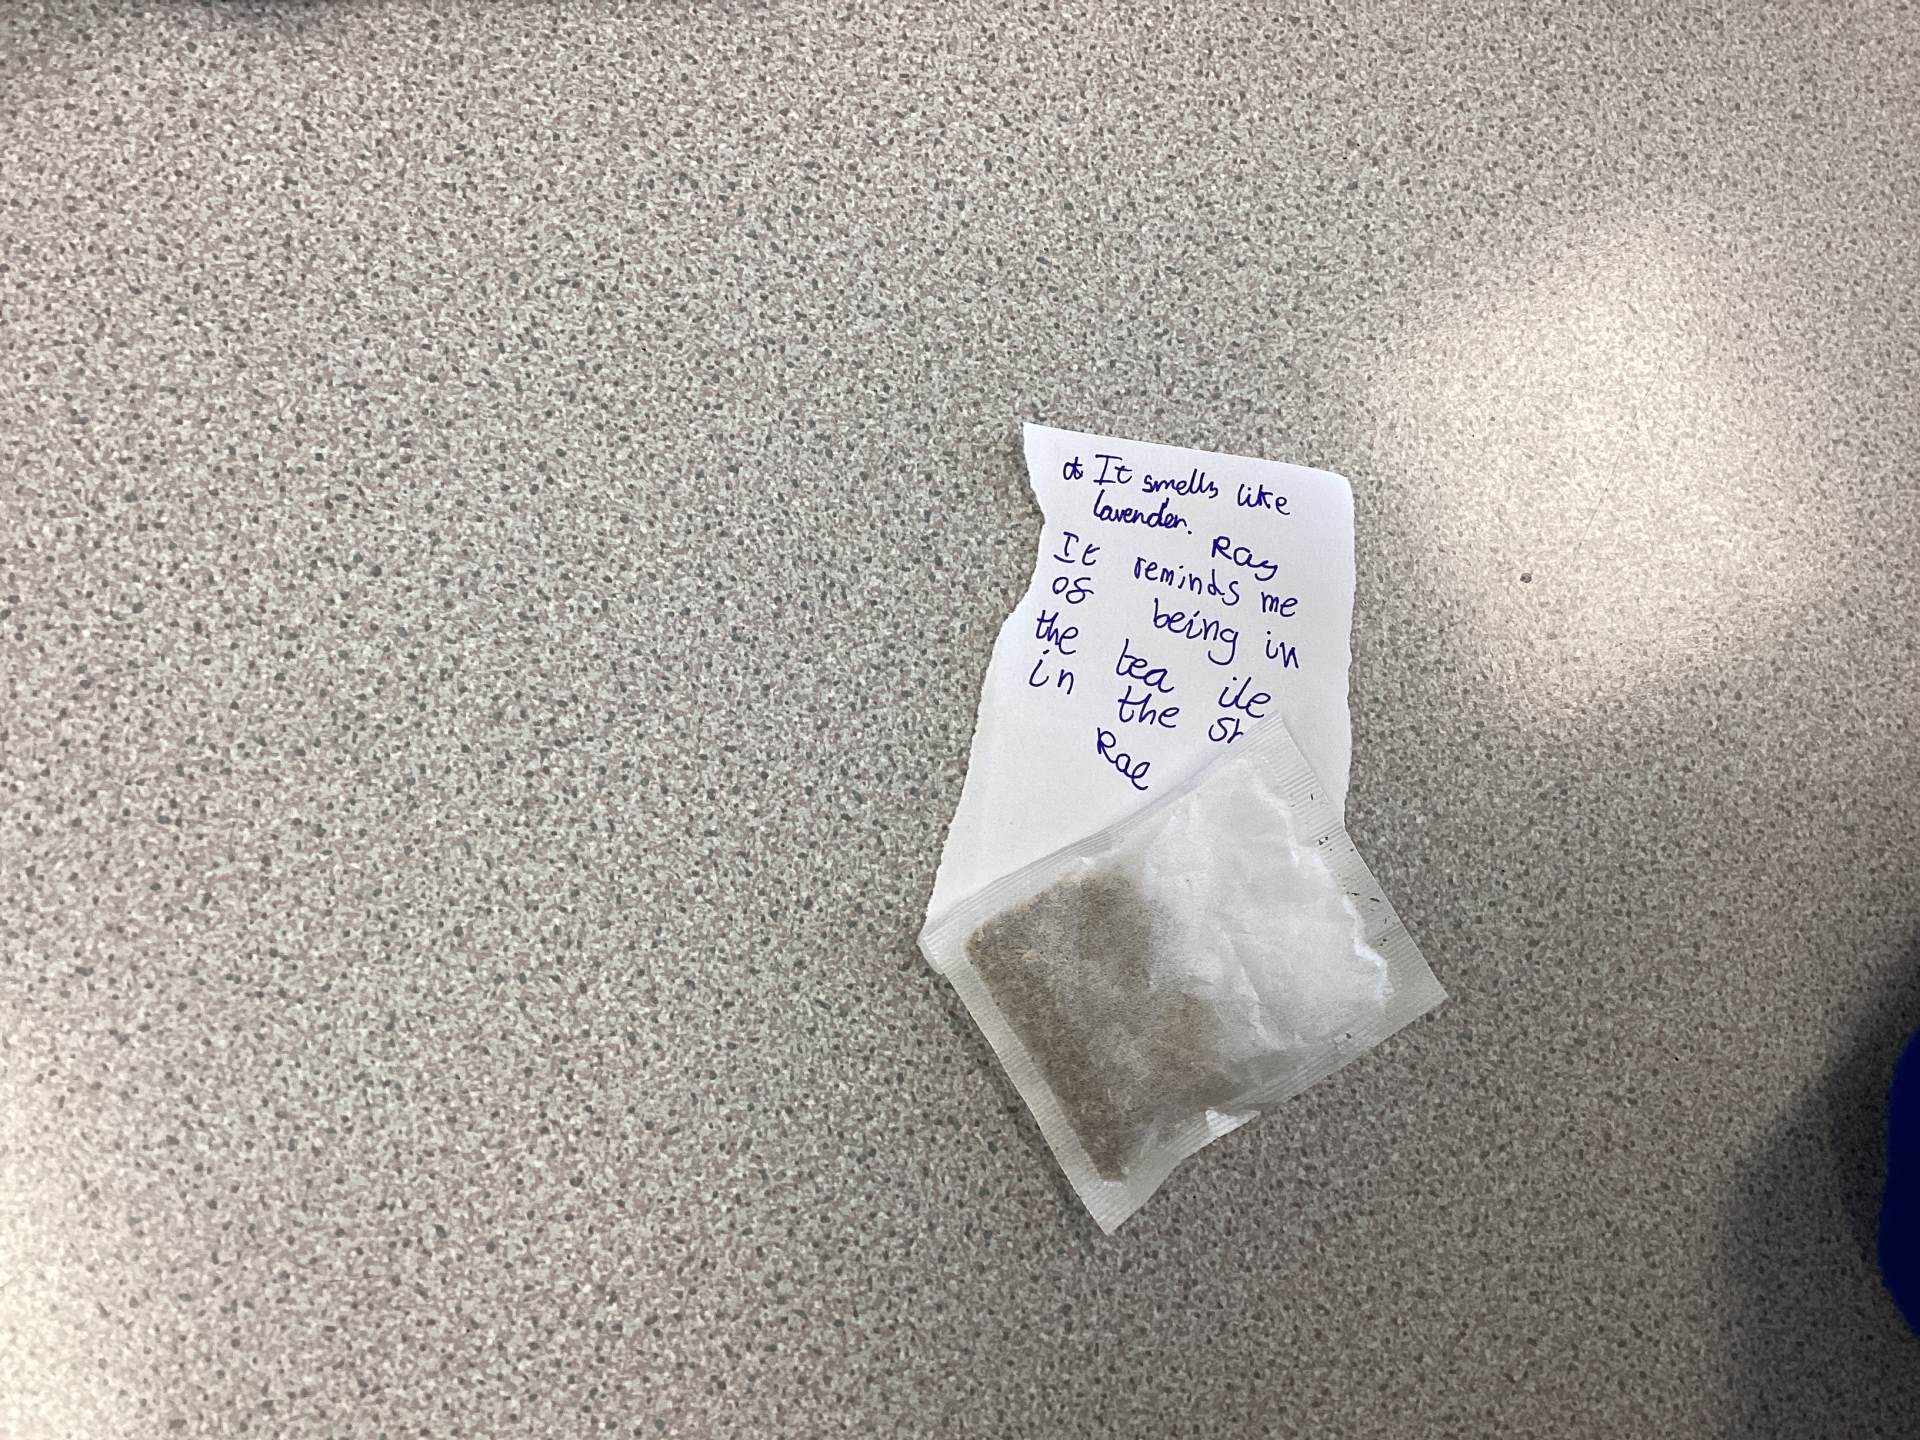 It smells like
lavender.
Ray
It reminds me
of being in
the tea ile
in the
Rae